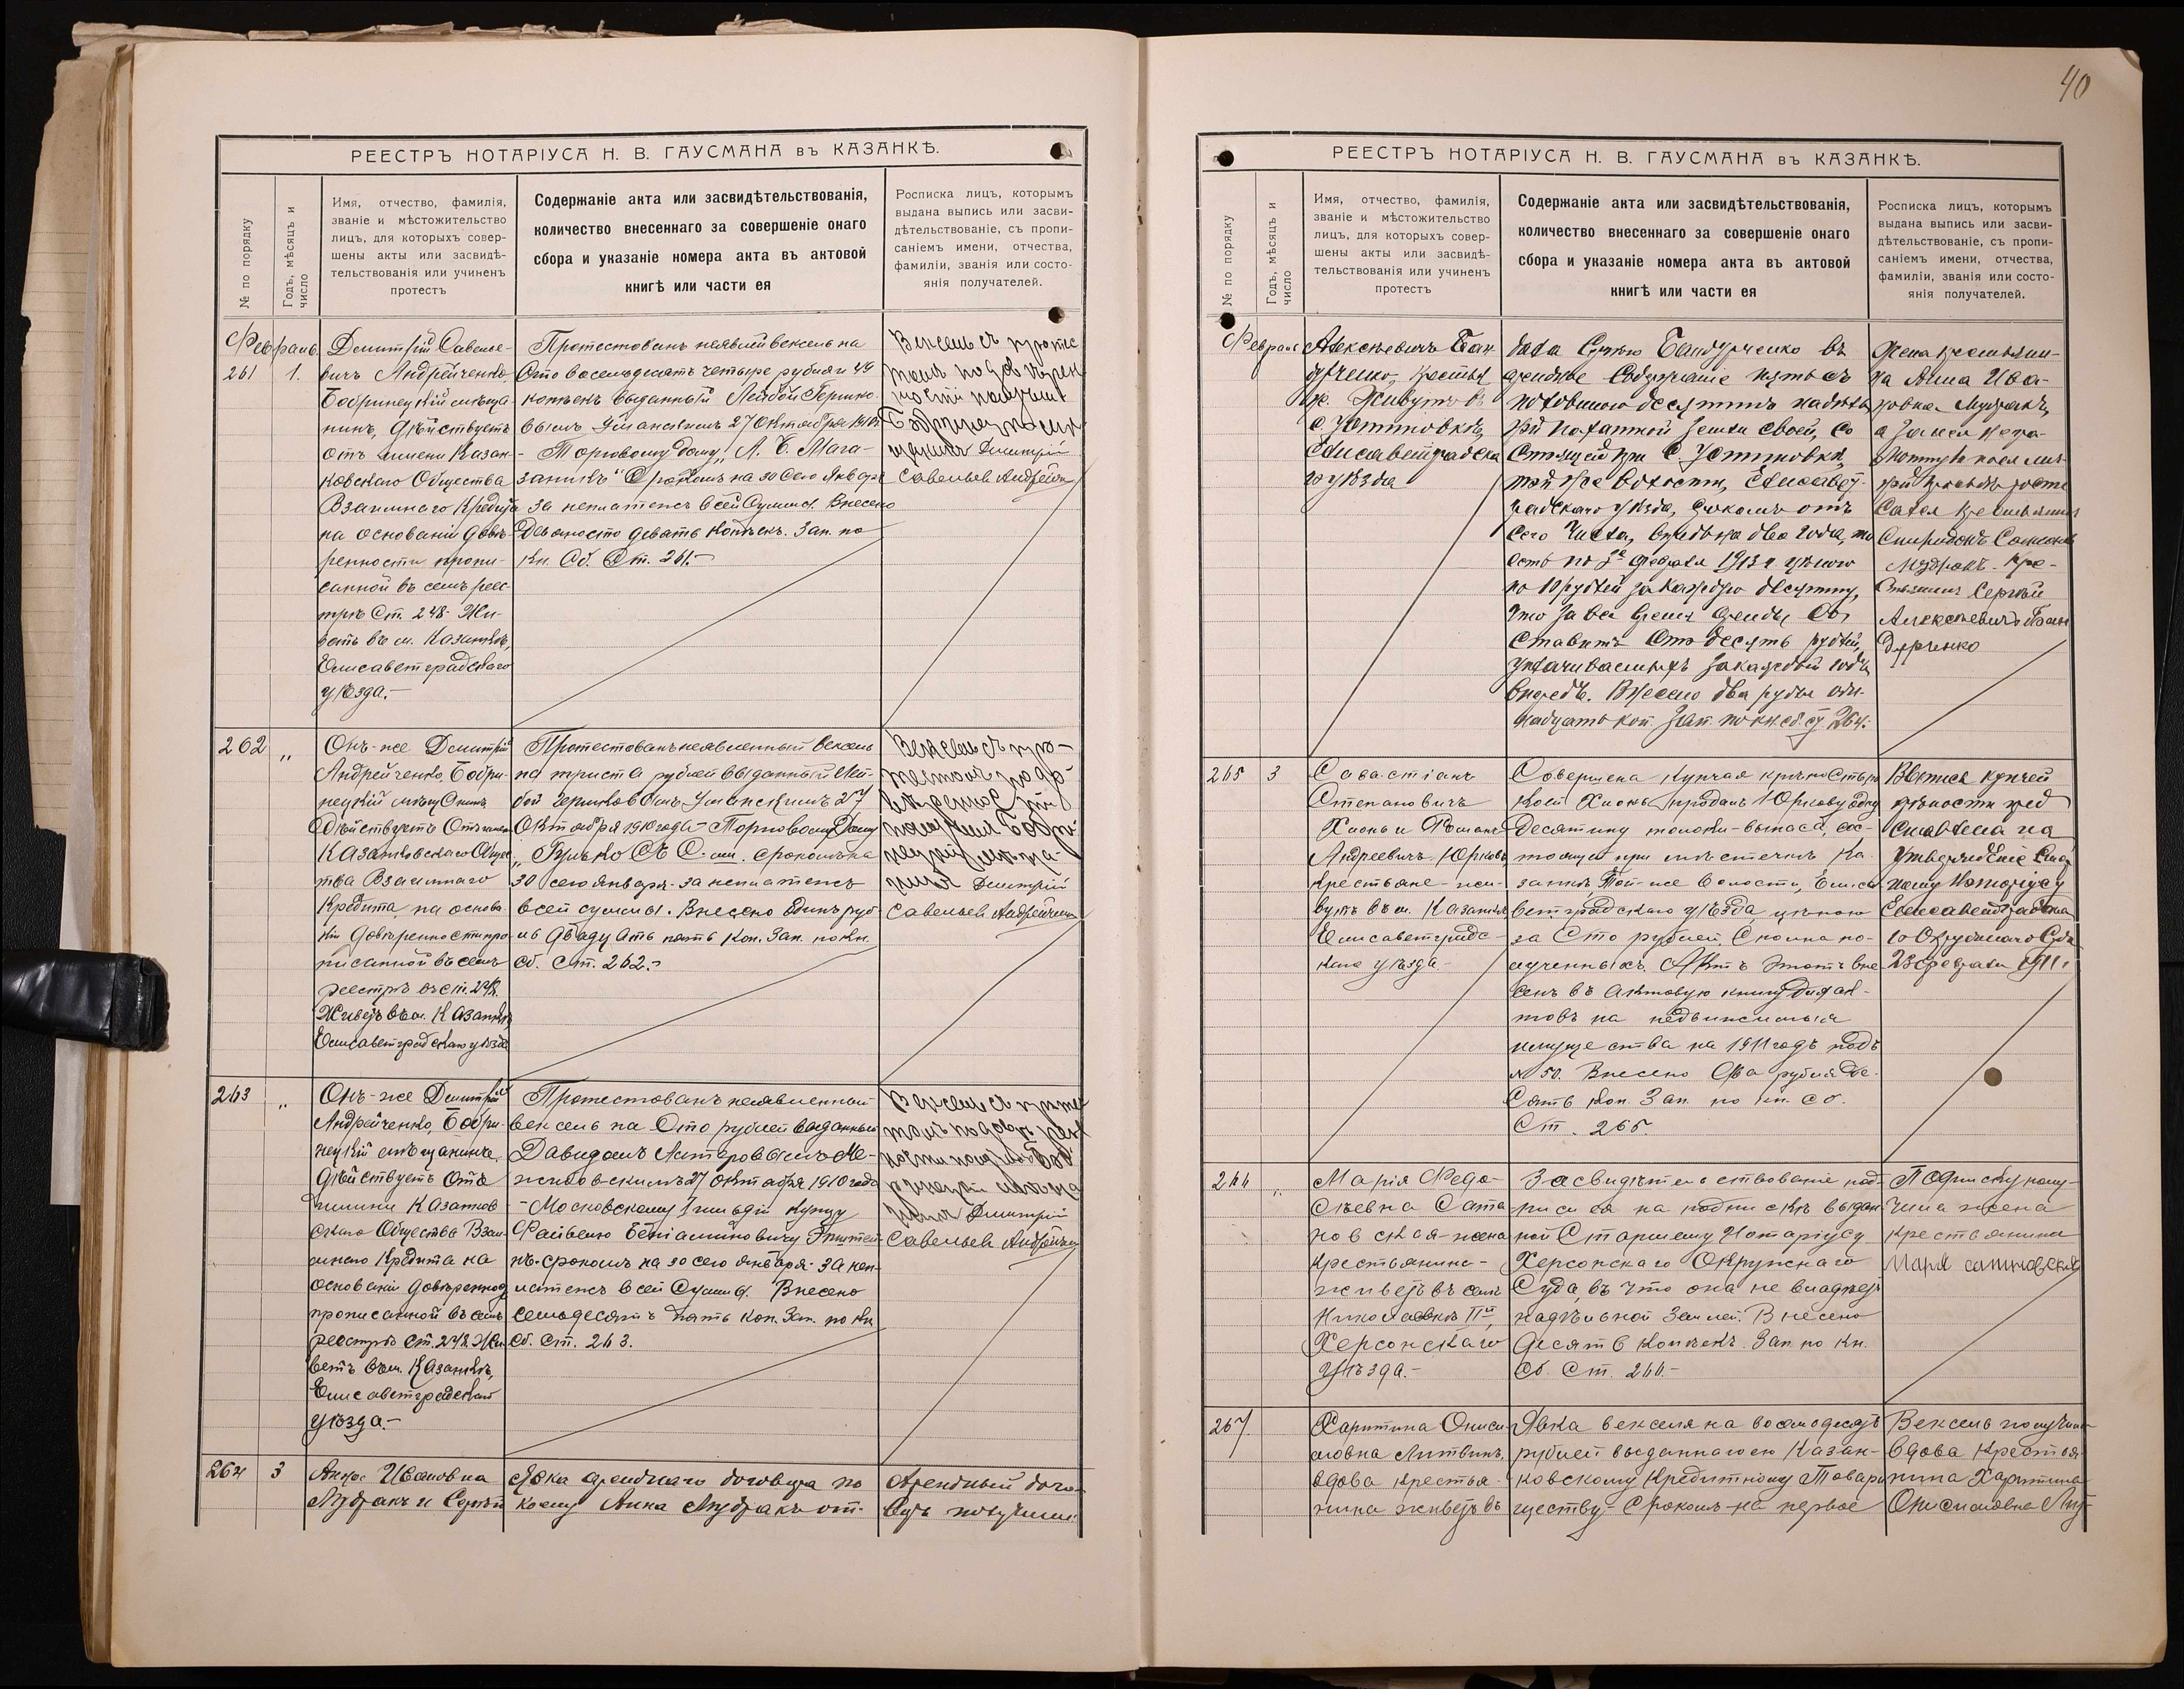 40
РЕЕСТРЪ НОТАРІУСА Н. В. ГАУСМАНА въ КАЗАНКѢ.
№ по порядку
Годъ, мѣсяцъ и
число
Имя, отчество, фамилія,
званіе и мѣстожительство
лицъ, для которыхъ совер-
шены акты или засвидѣ-
тельствованія или учиненъ
протестъ
Содержаніе акта или засвидѣтельствованія,
количество внесеннаго за совершеніе онаго
сбора и указаніе номера акта въ актовой
книгѣ или части ея
Росписка лицъ, которымъ
выдана выпись или засви-
дѣтельствованіе, съ пропи-
саніемъ имени, отчества,
фамиліи, званія или состо-
янія получателей.
Февраль
261 1.
Дмитрій Савелье-
вичъ Андрейченко,
Бобринецкій мѣща-
нинъ, дѣйствуетъ
отъ имени Казан-
ковскаго Общества
Взаимнаго Кредита
на основаніи довѣ-
ренности пропи-
санной въ семъ реес-
трѣ Ст. 248. Жи-
ветъ въ м. Казанкѣ,
Елисаветградскаго
уѣзда.-
Протестованъ неявлен вексель на
Сто восемьдесятъ четыре рубля и 44
копѣекъ выданный Лейбой Гершко-
вымъ Уманскимъ 27 Октября 1910
- Торговому Дому „Л. Б. Мага-
заникъ" Срокомъ на 30 сего Января
за неплатежъ всей Суммы. Внесено
девяносто девять копѣекъ. Зап. по
Кн. Сб. Ст. 261.-
Вексель съ протес
томъ по довѣрен
ности получилъ
Бобринецкій
мѣщанинъ Дмитрій
Савельевъ Андрейченко
262 „
Онъ-же Дмитрій
Андрейченко, Бобри-
нецкій мѣщанинъ
Дѣйствуетъ Отъ имени
Казанковскаго Общес
тва Взаимнаго
Кредита, на основа-
ніи довѣренности про-
писанной въ семъ
реестрѣ въ ст. 248.
Живетъ въ м. Казанкѣ
Елисаветградскаго уѣзда
Протестованъ неявленный вексель
на триста рублей выданный Лей-
бой Гершковымъ Уманскимъ 27
Октября 1910 года - Торговому Дому
Срокомъ на
30 сего января - за неплатежъ
всей суммы. Внесено Одинъ руб-
ль двадцать пять коп. Зап. по Кн.
Сб. Ст. 262.-
Вексель съ про-
тестомъ по до-
вѣренности
получилъ Бобри-
нецкій мѣща-
нинъ Дмитрій
Савельевъ Андрейченко
263 „
Онъ-же Дмитрій
Андрейченко, Бобри-
нецкій мѣщанинъ.
Дѣйствуетъ Отъ
имени Казанков
скаго Общества Взаи
мнаго Кредита на
основаніи довѣренност
прописанной въ семъ
реестрѣ ст. 248. Жи-
ветъ въ м. Казанкѣ,
Елисаветградскаго
уѣзда.-
Протестованъ неявленный
вексель на Сто рублей выданный
Давидомъ Ме-
жибовскимъ 27 октября 1910 года
- Московскому 1 гильдіи купцу
Файвелю Беніаминовичу Эпштей-
нъ - срокомъ на 30 сего января - за неп-
латежъ всей Суммы. Внесено
семьдесятъ пять коп. Зап. по Кн.
Сб. Ст. 263.
Вексель съ протес
томъ по довѣрен
ности получилъ Боб
ринецкій мѣща
нинъ Дмитрій
Савельевъ Андрейченко
264 3
Анна Ивановна
Мудракъ и Сергѣй
Явка аренднаго договора по
коему Анна Мудракъ от-
Арендный дого-
воръ получили
РЕЕСТРЪ НОТАРІУСА Н. В. ГАУСМАНА въ КАЗАНКѢ.
№ по порядку
Годъ, мѣсяцъ и
число
Имя, отчество, фамилія,
званіе и мѣстожительство
лицъ, для которыхъ совер-
шены акты или засвидѣ-
тельствованія или учиненъ
протестъ
Содержаніе акта или засвидѣтельствованія,
количество внесеннаго за совершеніе онаго
сбора и указаніе номера акта въ актовой
книгѣ или части ея
Росписка лицъ, которымъ
выдана выпись или засви-
дѣтельствованіе, съ пропи-
саніемъ имени, отчества,
фамиліи, званія или состо-
янія получателей.
Февраль
Алексѣевичъ Бан
дурченко, крестья
не. Живутъ въ
с. Устиновкѣ,
Елисаветградска
го уѣзда
дала Сергѣю Бандурченко въ
арендное Содержаніе пять съ
половиною десятинъ надѣль
ной пахатной земли своей, со
стоящей при с. Устиновкѣ,
той же волости, Елисавет-
градскаго уѣзда, срокомъ отъ
сего числа, впредь на два года, то
есть по 3е февраля 1913 г. цѣною
по 10 рублей за каждую десятину,
что за все время аренды Со-
ставитъ Сто десять рублей,
уплачиваемыхъ за каждый годъ
впредъ. Внесено два рубля оди-
надцать коп. Зап. по кн. сб. ст. 264.
Жена крестьяни-
на Анна Ива-
новна Мудракъ,
а за нея негра-
мотную
росписался крестьянинъ
Спиридонъ
Мудракъ. Кре-
стьянинъ Сергѣй
Алексѣевичъ Бан
дурченко
265 3
Савастіанъ
Степановичъ
Хионъ и Романъ
Андреевичъ Юрковъ
крестьяне - жи-
вутъ въ м. Казанкѣ
Елисаветградс-
каго уѣзда -
Совершена купчая крѣпость по
коей Хионъ продалъ Юркову одну
десятину толоки-выпаса, сос-
тоящей при мѣстечкѣ Ка-
занкѣ, Той-же волости, Елиса
ветградскаго уѣзда, цѣною
за Сто рублей, Сполна по-
лученныхъ. Актъ этотъ вне
сенъ въ актовую книгу для ак-
товъ на недвижимыя
имущества на 1911 годъ подъ
№ 50. Внесено Два рубля де-
сять коп. Зап. по кн. сб.
Ст. 265.
Выпись купчей
крѣпости пред
ставлена на
утвержденіе Стар
шему Нотаріусу
Елисаветградска
го Окружнаго Суда
23 февраля 1911 г.
266 „
Марія Федо-
сѣевна Сати
новская - жена
Крестьянина -
живетъ въ селѣ
Николаевкѣ IIй,
Херсонскаго
уѣзда.-
Засвидѣтельствованіе под-
писи ея на подпискѣ выдан-
ной Старшему Нотаріусу
Херсонскаго Окружнаго
Суда, въ что она не владѣетъ
надѣльной Землей. Внесено
десять копѣекъ. Зап. по кн.
Сб. Ст. 266.-
Подписку полу-
чила жена
крестьянина
Марія Сатиновская
267.
Харитина Ониси
мовна Литвинъ,
вдова крестья-
нина живетъ въ
Явка векселя на восемьдесятъ
рублей выданнаго ею Казан-
ковскому Кредитному Товари
ществу - Срокомъ на первое
Вексель получила
вдова Крестья
нина Харитина
Онисимовна Лит-